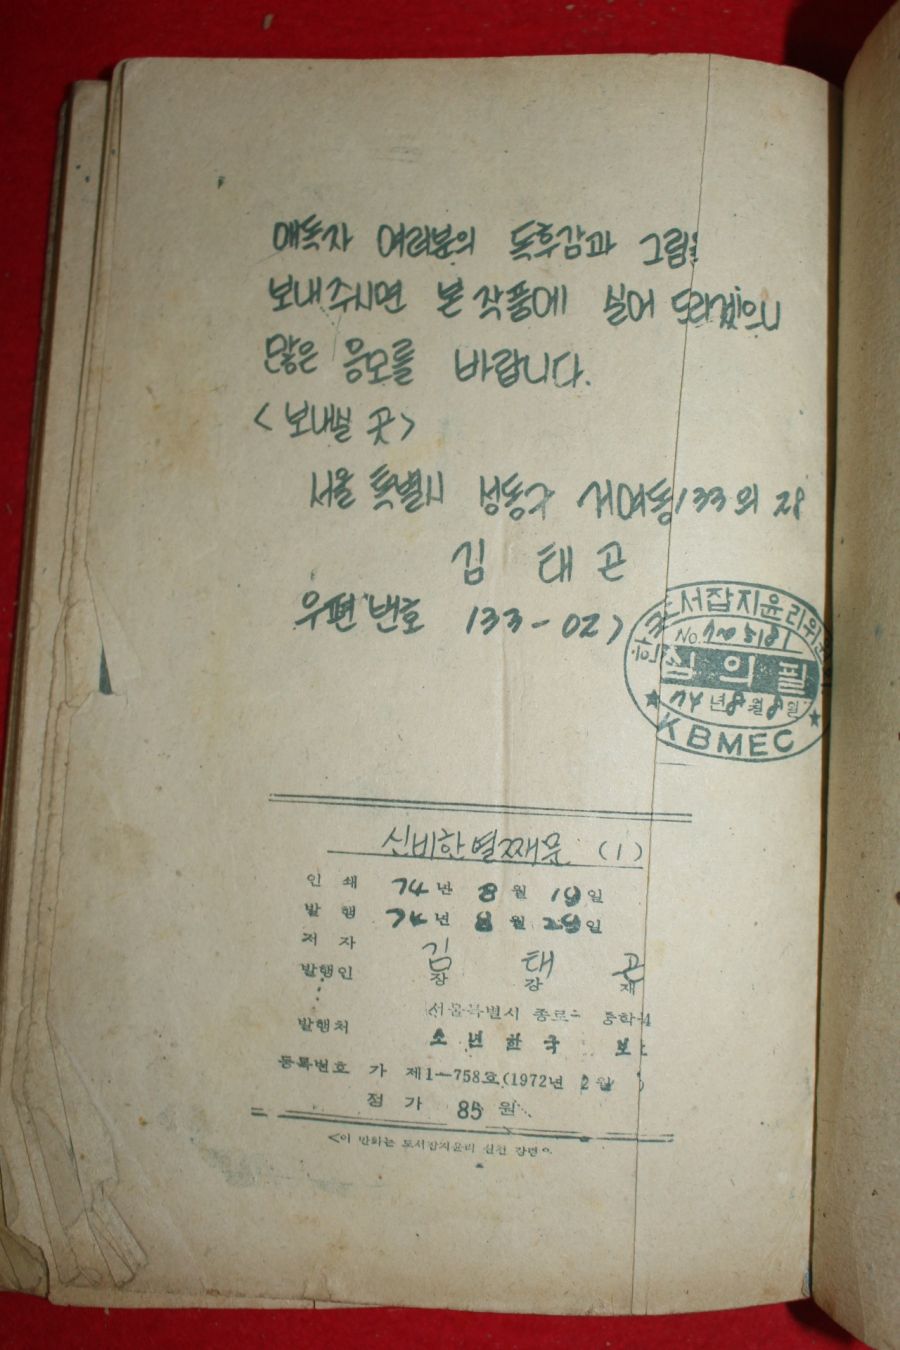 애독자 여러분의 독후감과 그림을
보내주시면 본 작품에 실어 드리겠으니
많은 응모를 바랍니다.
<보내실 곳>
서울 특별시 성동구 133의 28
김 태 곤
우편번호 133-02
도서잡지윤리위원
No.
심의필
74년 8월 8일
KBMEC
신비한 열째문 (1)
인 쇄 74년 8월 19일
발 행 74년 8월 29일
저 자 김 태 곤
발행인 장 강 재
서울특별시 종로 중학
발행처 소년한국 보
등록번호 가 제1-758호(1972년 2월
정 가 85 원
<이 만화는 도서잡지윤리 실천